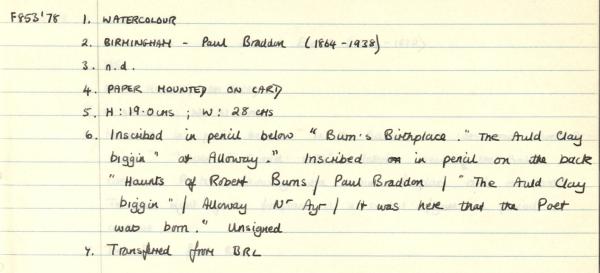 F853'78 1. WATERCOLOUR
2. BIRMINGHAM - Paul Braddon (1864-1938)
3. n.d.
4. PAPER MOUNTED ON CARD
5. H: 19.0 CMS ; W: 28 CMS
6. Inscribed in pencil below "Burn's Birthplace." The Auld Clay
biggin" at Alloway." Inscribed in pencil on the back
"Haunts of Robert Burns / Paul Braddon / "The Auld Clay
biggin" / Alloway Nr Ayr / It was here that the Poet
was born." Unsigned
7. Transferred from BRL